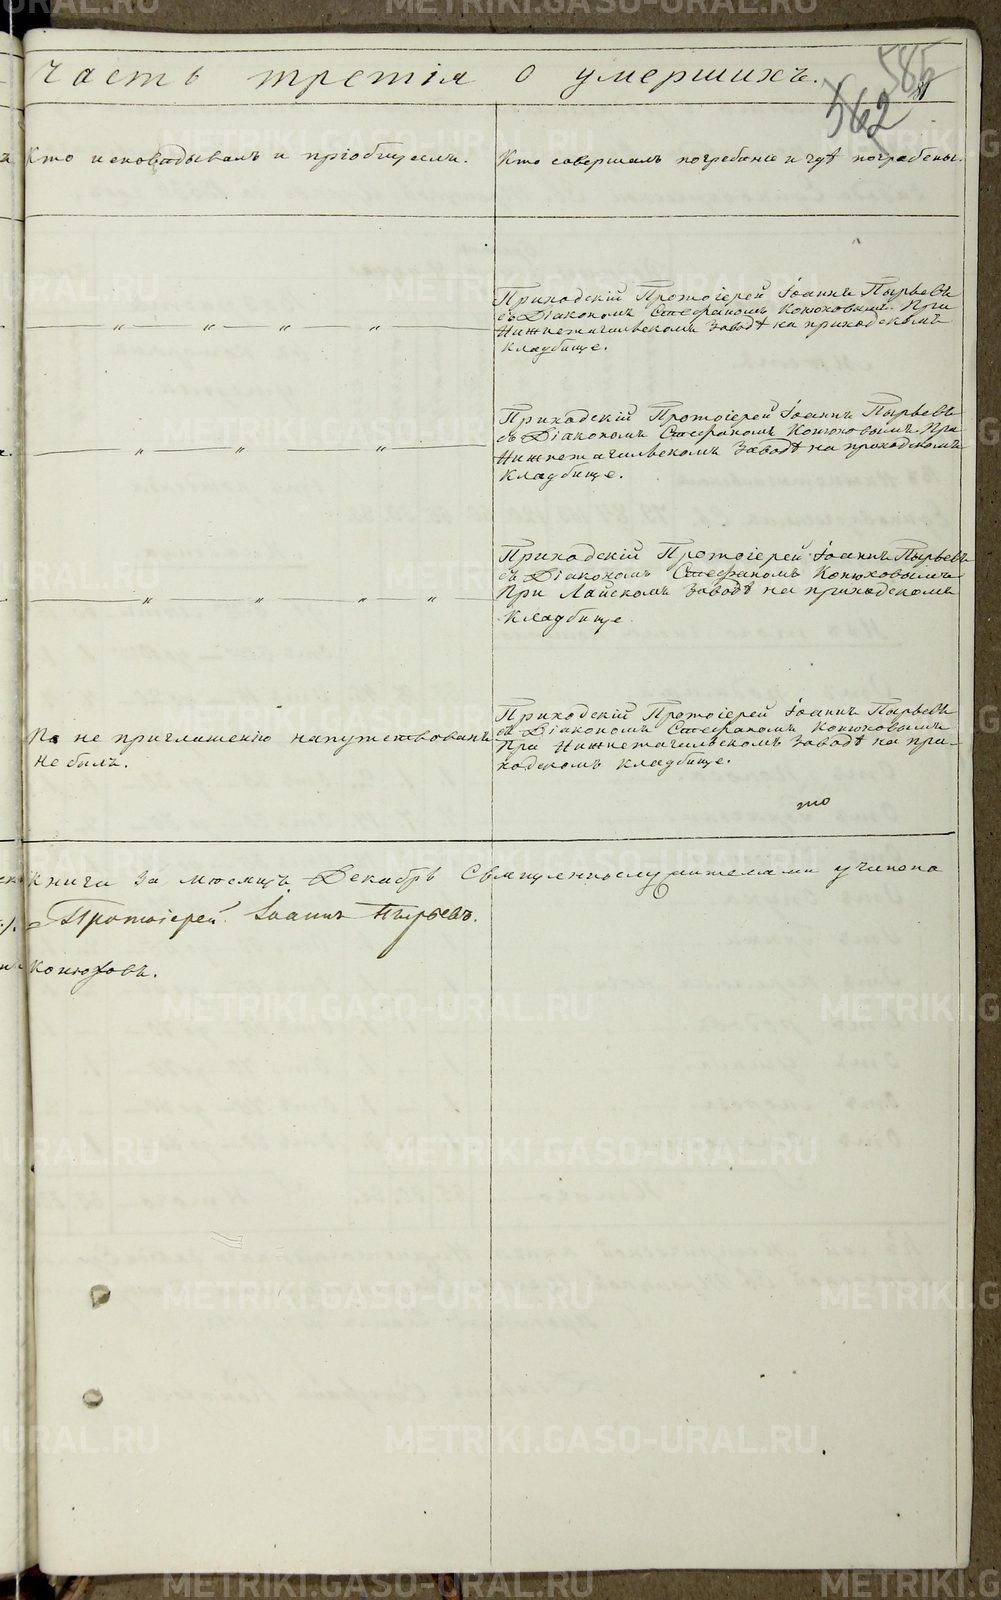 часть третія о умершихъ.
585
562
Кто исповѣдывалъ и пріобщалъ.
Кто совершалъ погребеніе и гдѣ погребены.
Приходскій Протоіерей Іоаннъ Пырьевъ
съ Діакономъ Стефаномъ Конюховымъ. При
Нижнетагильскомъ Заводѣ на приходскомъ
кладбище.
Приходскій Протоіерей Іоаннъ Пырьевъ
съ Діакономъ Стефаномъ Конюховымъ. При
Нижнетагильскомъ Заводѣ на приходскомъ
кладбище.
Приходскій Протоіерей Іоаннъ Пырьевъ
съ Діакономъ Стефаномъ Конюховымъ
При Лайскомъ заводѣ на приходскомъ
кладбище
По не приглашенію напутствованъ
не былъ.
Приходскій Протоіерей Іоаннъ Пырьевъ
съ Діакономъ Стефаномъ Конюховымъ
При Нижнетагильскомъ Заводѣ на при-
ходскомъ кладбище.
книги За мѣсяцъ Декабрь Священнослужителями учинена
Протоіерей Іоаннъ Пырьевъ.
Конюховъ.
METRIKI.GASO-URAL.RU